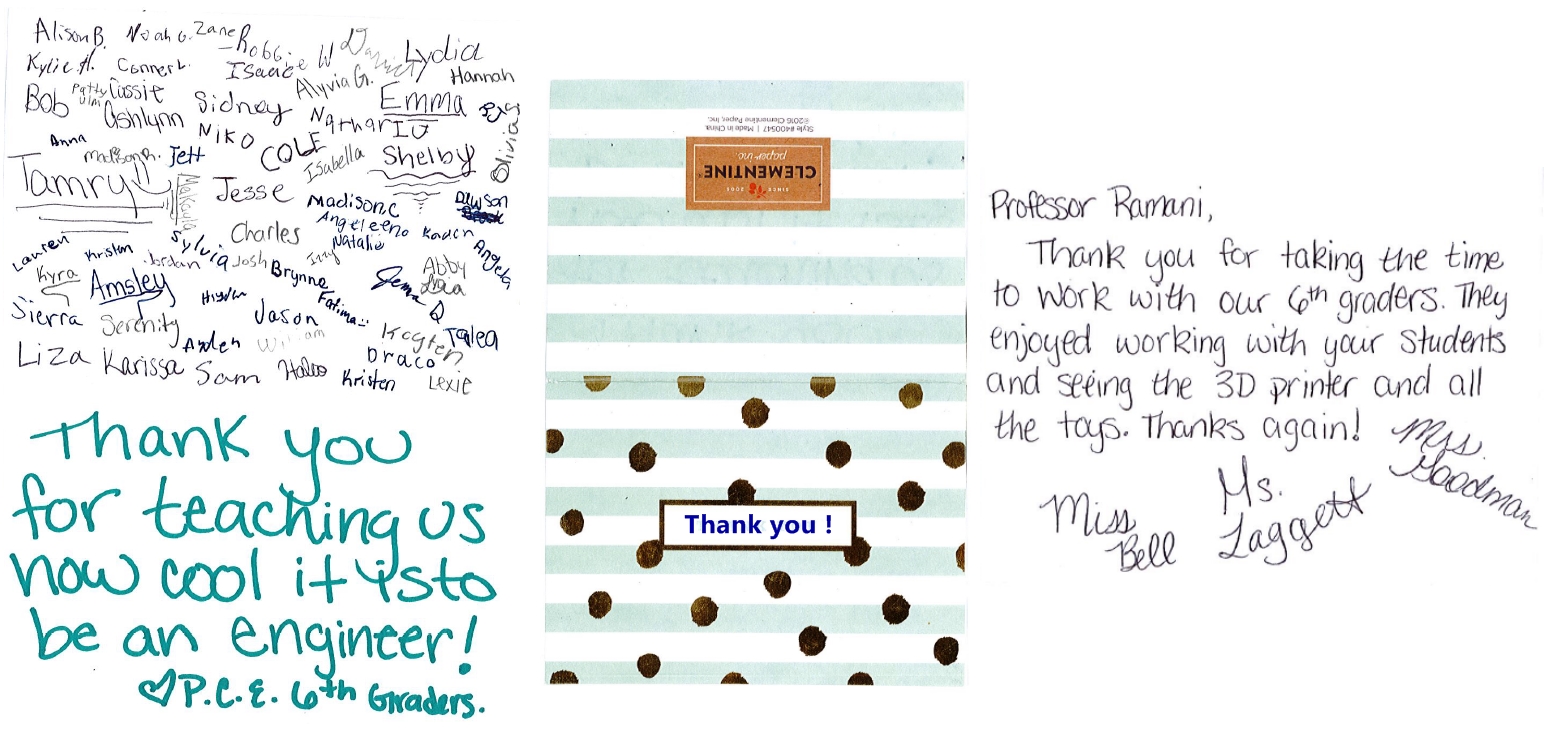 Alison B. Noah G. Zane Robbie W Daniel Lydia
Kylie H. Conner L. Isaac Alyvia G. Hannah
Bob Patty Cassie Sidney Emma
Ashlynn Niko Nathan Olivia S
Anna Madison R. Jett COLE Isabella Shelby
Tamry Makayla Jesse Madison.C Dawson
Angeleeno
Lauren Kristen Sylvia Charles Natalie Kaden Angela
Kyra Jordan Josh Brynne Abby
Amsley Fatima
Sierra Serenity Jason Talea
Ayden William
Liza Karissa Sam Draco Lexie
Kristen
Thank you
for teaching us
how cool it is to
be an engineer!
♡ P.C.E. 6th Graders.
Style #400547 | Made in China
©2016 Clementine Paper, Inc.
CLEMENTINE®
paper inc.
SINCE 2005
Thank you !
Professor Ramani,
Thank you for taking the time
to work with our 6th graders. They
enjoyed working with your students
and seeing the 3D printer and all
the toys. Thanks again!
Mrs. Goodman
Ms. Laggett
Miss Bell